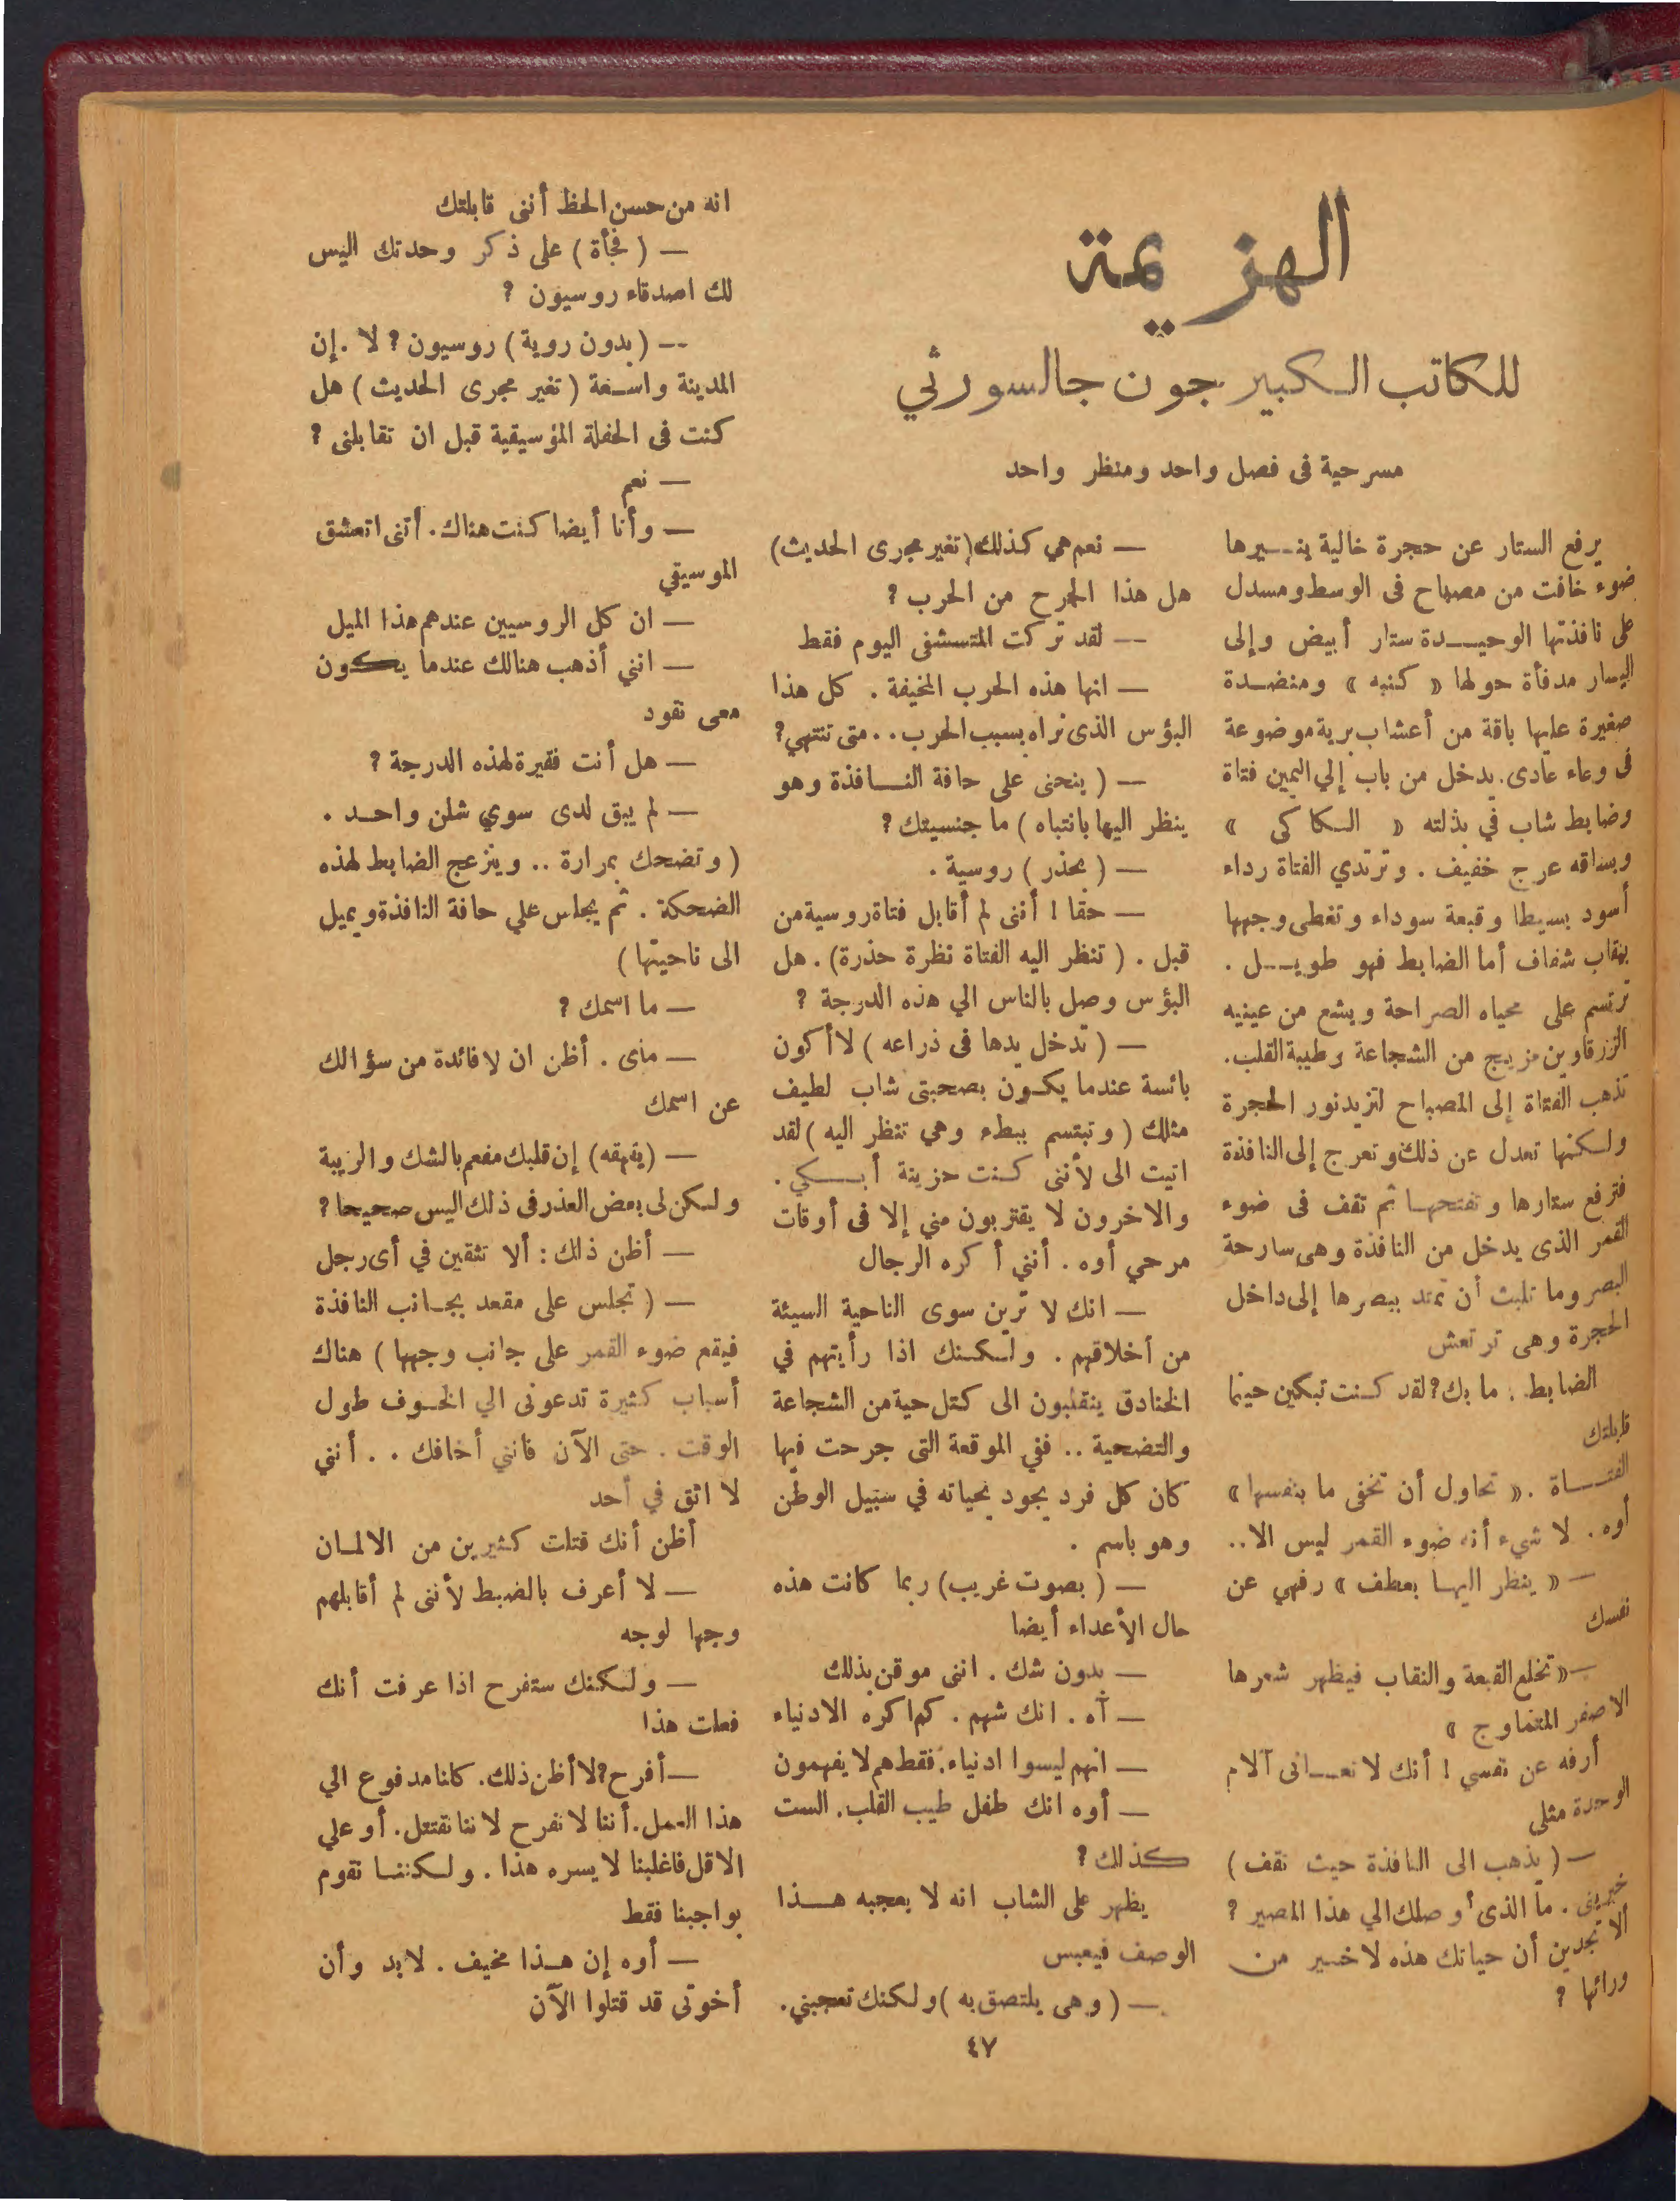 الهزيمة
للكاتب الكبير جون جالسورثي
مسرحية فى فصل واحد ومنظر واحد
يرفع الستار عن حجرة خالية ينيرها
ضوء خافت من مصباح فى الوسط ومسدل
على نافذتها الوحيدة ستار أبيض وإلى
اليسار مدفأة حولها « كنبه » ومنضدة
صغيرة عليها باقة من أعشاب برية موضوعة
فى وعاء عادى. يدخل من باب إلي اليمين فتاة
وضابط شاب في بذلته « الكاكى »
وبساقه عرج خفيف . وترتدي الفتاة رداء
أسود بسيطا وقبعة سوداء وتغطى وجهها
بنقاب شفاف أما الضابط فهو طويل .
ترتسم على محياه الصراحة ويشع من عينيه
الزرقاوين مزيج من الشجاعة وطيبة القلب.
تذهب الفتاة إلى المصباح لتزيد نور الحجرة
ولكنها تعدل عن ذلك وتعرج إلى النافذة
فترفع ستارها وتفتحها ثم تقف فى ضوء
القمر الذى يدخل من النافذة وهى سارحة
البصر وما تلبث أن تمتد ببصرها إلى داخل
الحجرة وهى ترتعش
الضابط : ما بك؟ لقد كنت تبكين حينما
قابلتك
الفتاة . « تحاول أن تخفى ما بنفسها »
أوه . لا شيء أنه ضوء القمر ليس الا..
— « ينظر اليها بعطف » رفهي عن
نفسك
— « تخلع القبعة والنقاب فيظهر شعرها
الاصفر المتماوج »
أرفه عن نفسي ! أنك لا تعانى آلام
الوحدة مثلى
— ( يذهب الى النافذة حيث تقف )
خبرينى . ما الذى أوصلك الي هذا المصير ؟
ألا تجدين أن حياتك هذه لا خير من
ورائها ؟
— نعم هي كذلك (تغير مجرى الحديث)
هل هذا الجرح من الحرب ؟
— لقد تركت المتسشفى اليوم فقط
— انها هذه الحرب المخيفة . كل هذا
البؤس الذى نراه بسبب الحرب.. متى تنتهي؟
— ( ينحنى على حافة النافذة وهو
ينظر اليها بانتباه ) ما جنسيتك ؟
— ( بحذر ) روسية .
— حقا ! أننى لم أقابل فتاة روسية من
قبل . ( تنظر اليه الفتاة نظرة حذرة) . هل
البؤس وصل بالناس الي هذه الدرجة ؟
— ( تدخل يدها فى ذراعه ) لا أكون
بائسة عندما يكون بصحبتى شاب لطيف
مثلك ( وتبتسم ببطء وهي تنظر اليه ) لقد
اتيت الى لأننى كنت حزينة أبكي .
والاخرون لا يقتربون مني إلا فى أوقات
مرحي أوه . أنني أكره الرجال
— انك لا ترين سوى الناحية السيئة
من أخلاقهم . ولكنك اذا رأيتهم في
الخنادق ينقلبون الى كتل حية من الشجاعة
والتضحية .. ففي الموقعة التى جرحت فيها
كان كل فرد يجود بحياته في سبيل الوطن
وهو باسم .
— ( بصوت غريب) ربما كانت هذه
حال الأعداء أيضا
— بدون شك . اننى موقن بذلك
— آه . انك شهم . كم اكره الادنياء
— انهم ليسوا ادنياء. فقط هم لا يفهمون
— أوه انك طفل طيب القلب. الست
كذلك ؟
يظهر على الشاب انه لا يعجبه هذا
الوصف فيعبس
— ( وهى يلتصق به ) ولكنك تعجبني .
انه من حسن الحظ أننى قابلتك
— ( فجأة ) على ذكر وحدتك اليس
لك اصدقاء روسيون ؟
— ( بدون روية ) روسيون ؟ لا . إن
المدينة واسعة ( تغير مجرى الحديث ) هل
كنت فى الحفلة المؤسيقية قبل ان تقابلنى ؟
— نعم
— وأنا أيضا كنت هناك . أننى اتعشق
الموسيقي
— ان كل الروسيين عندهم هذا الميل
— انني أذهب هنالك عندما يكون
معى نقود
— هل أنت فقيرة لهذه الدرجة ؟
— لم يبق لدى سوي شلن واحد .
( وتضحك بمرارة .. وينزعج الضابط لهذه
الضحكة . ثم يجلس علي حافة النافذة ويميل
الى ناحيتها )
— ما اسمك ؟
— ماى . أظن ان لا فائدة من سؤالك
عن اسمك
— (يقهقه) إن قلبك مفعم بالشك والريبة
ولكن لى بعض العذر فى ذلك اليس صحيحا ؟
— أظن ذلك : ألا تثقين في أى رجل
— ( تجلس على مقعد بجانب النافذة
فيقع ضوء القمر على جانب وجهها ) هناك
أسباب كثيرة تدعونى الي الخوف طول
الوقت . حتى الآن فانني أخافك . . أنني
لا اثق في أحد
أظن أنك قتلت كثيرين من الالمان
— لا أعرف بالضبط لأننى لم أقابلهم
وجها لوجه
— ولكنك ستفرح اذا عرفت أنك
فعلت هذا
— أفرح؟ لا أظن ذلك. كلنا مدفوع الي
هذا العمل. أننا لا نفرح لاننا نقتتل. أو علي
الاقل فاغلبنا لا يسره هذا . ولكننا نقوم
بواجبنا فقط
— أوه إن هذا مخيف . لابد وأن
أخوتى قد قتلوا الآن
٤٧